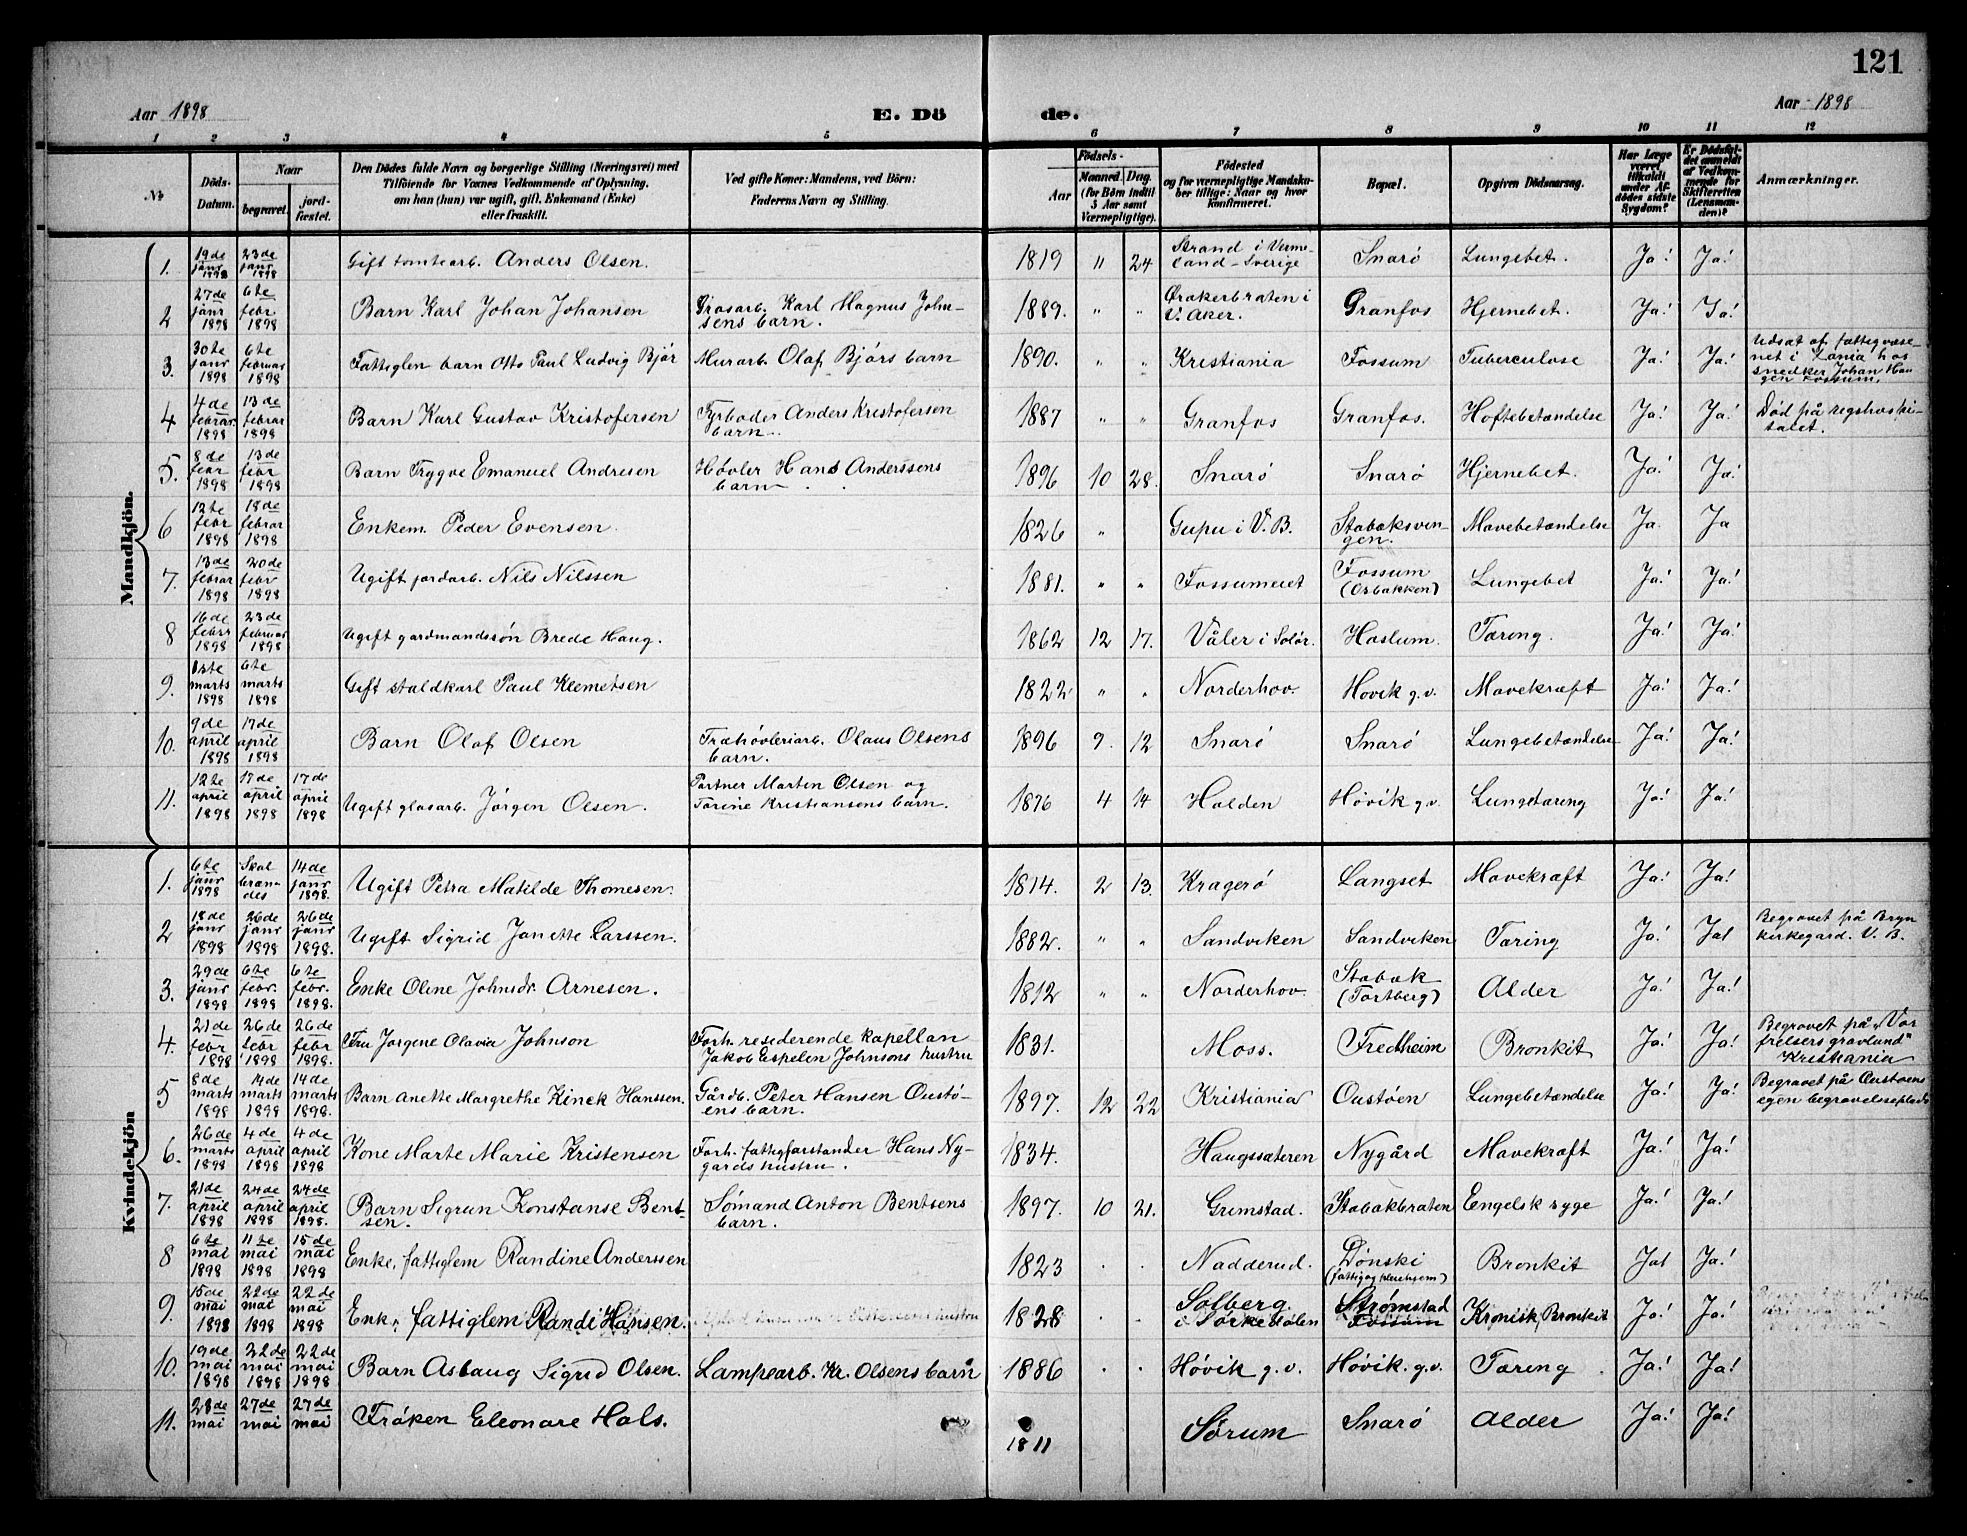 121
Aar 1898 E. Dö de. Aar 1898
1 2 3 4 5 6 7 8 9 10 11 12
№ Döds-Datum. Naar begravet. jord-fæstet. Den Dödes fulde Navn og borgerlige Stilling (Næringsvei) med Tilföiende for Voxnes Vedkommende af Oplysning, om han (hun) var ugift, gift, Enkemand (Enke) eller fraskilt. Ved gifte Koner: Mandens, ved Börn: Faderens Navn og Stilling. Födsels- Aar Maaned. Dag. (for Börn indtil 5 Aar samt Værnepligtige). Födested og for værnepligtige Mandskaber tillige: Naar og hvor konfirmeret. Bopæl. Opgiven Dödsaarsag. Har Læge været tilkaldt under Afdödes sidste Sygdom? Er Dödsfaldet anmeldt af Vedkommende for Skifteretten (Lensmanden)? Anmærkninger.
Mandkjön.
1. 19de janr 1898 23de janr 1898 Gift tomtearb. Anders Olsen. 1819 11 24 Strand i Verme-land - Sverige Snarö Lungebet. Ja! Ja!
2 27de janr 1898 6te febr 1898 Barn Karl Johan Johansen Grasarb. Karl Magnus John-sens barn. 1889. " " Ørakerbraten i V. Aker. Granfos Hjernebet. Ja! Ja!
3. 30te janr 1898 6te februar 1898 Fattiglem barn Otto Paul Ludvig Björ Murarb. Olaf Björs barn 1890. " " Kristiania Fossum Tuberculose Ja! Ja! Udsat af fattigvæse-net i Xania hos snedker Johan Hau-gen Fossum.
4 4de februar 1898 13de februar 1898 Barn Karl Gustav Kristofersen Fyrböder Anders Kristofersen barn. 1887 " " Granfos Granfos. Hoftebetændelse Ja! Ja! Död på rigshospi-talet.
5. 8de febr 1898 13de febr 1898 Barn Trygve Emanuel Andresen Høvler Hans Anderssens barn 1896 10 28. Snarö Snarö Hjernebet. Ja! Ja.
6 12te febr 1898 18de februar 1898 Enkem. Peder Evensen. 1826 " Gupu i V. B. Stabæksvin-gen. Mavebetændelse Ja. Ja
7. 13de februar 1898 20de febr 1898 Ugift jordarb. Nils Nilssen 1881. " " Fossumeiet Fossum (Osbakken) Lungebet Ja! Ja!
8 16de febr 1898 23de februar 1898 Ugift gardmandssön Brede Haug. 1862 12 17. Våler i Solör. Haslum. Tæring. Ja! Ja!
9. 1ste marts 1898 6te marts 1898 Gift staldkarl Paul Klemetsen 1822 " " Norderhov. Hövik g.v. Mavekræft Ja! Ja!
10. 9de april 1898 17de april 1898 Barn Olaf Olsen Træhövleriarb. Olaus Olsens barn. 1896 9. 12 Snarö Snarö Lungebetændelse Ja! Ja!
11. 12te april 1898 17de april 1898 17de april 1898 Ugift glasarb. Jörgen Olsen. Portner Marten Olsen og Tarine Kristiansens barn. 1876 4 14 Halden Hövik g.v. Lungetæring Ja! Ja!
Kvindekjön
1. 6te janr 1898 Skal bræn-des 14de janr 1898. Ugift Petra Matilde Thomesen. 1814. 2 13. Kragerö Langset Mavekræft Ja! Ja!
2 18de janr 1898 26de janr 1898 26de janr 1898. Ugift Sigrid Janette Larssen. 1882. " " Sandviken Sandviken Tæring Ja! Ja! Begravet på Bryn kirkegard. V. B.
3. 29de janr 1898 6te febr. 1898 6te febr. 1898. Enke Oline Johnsdr. Arnesen. 1812 " " Norderhov. Stabæk (Tortberg) Alder Ja! Ja!
4. 21de febr 1898 26de febr 1898 26de febr 1898. Fru Jörgene Olavia Johnson Forh. residerende kapellan Jakob Espelen Johnsons hustru 1831. Moss. Fredheim Bronkit Ja! Ja! Begravet på "Vor frelsers gravlund" Kristiania
5 8de marts 1898 14de marts 1898 14de marts 1898. Barn Anette Margrethe Kinck Hanssen. Gårdb. Peter Hansen Oustö-ens barn. 1897. 12 22 Kristiania Oustöen Lungebetændelse Ja! Ja! Begravet på Oustöens egen begravelseplads
6. 26de marts 1898 4de april 1898 4de april 1898 Kone Marte Marie Kristensen Forh. fattigforstander Hans Ny-gards hustru. 1834. Haugssæteren Nygård Mavekræft Ja! Ja!
7. 21de april 1898 24de april 1898 24de april 1898. Barn Sigrun Konstanse Bent-sen. Sömand Anton Bentsens barn. 1897. 10 21. Grimstad. Stabækbraten Engelsk syge Ja! Ja!
8 6te mai 1898 11te mai 1898 15de mai 1898 Enke, fattiglem Randine Anderssen 1823 Nadderud. Dönski (fattig og pleiehjem) Bronkit Ja! Ja!
9. 15de mai 1898 22de mai 1898 22de mai 1898 Enke, fattiglem Randi Hansen. hustru 1828 Solberg. i Sörkedalen Strømstad Fossum Kronisk Bronkit Ja! Ja!
10. 19de mai 1898 22de mai 1898 22de mai 1898 Barn Aslaug Sigrid Olsen. Lampearb. Kr. Olsens barn 1886 Hövik g.v. Hövik. g.v. Tæring Ja! Ja!
11. 28de mai 27de mai 27de mai Fröken Eleonare Hals. 1811 Sørum Snarö Alder Ja! Ja!